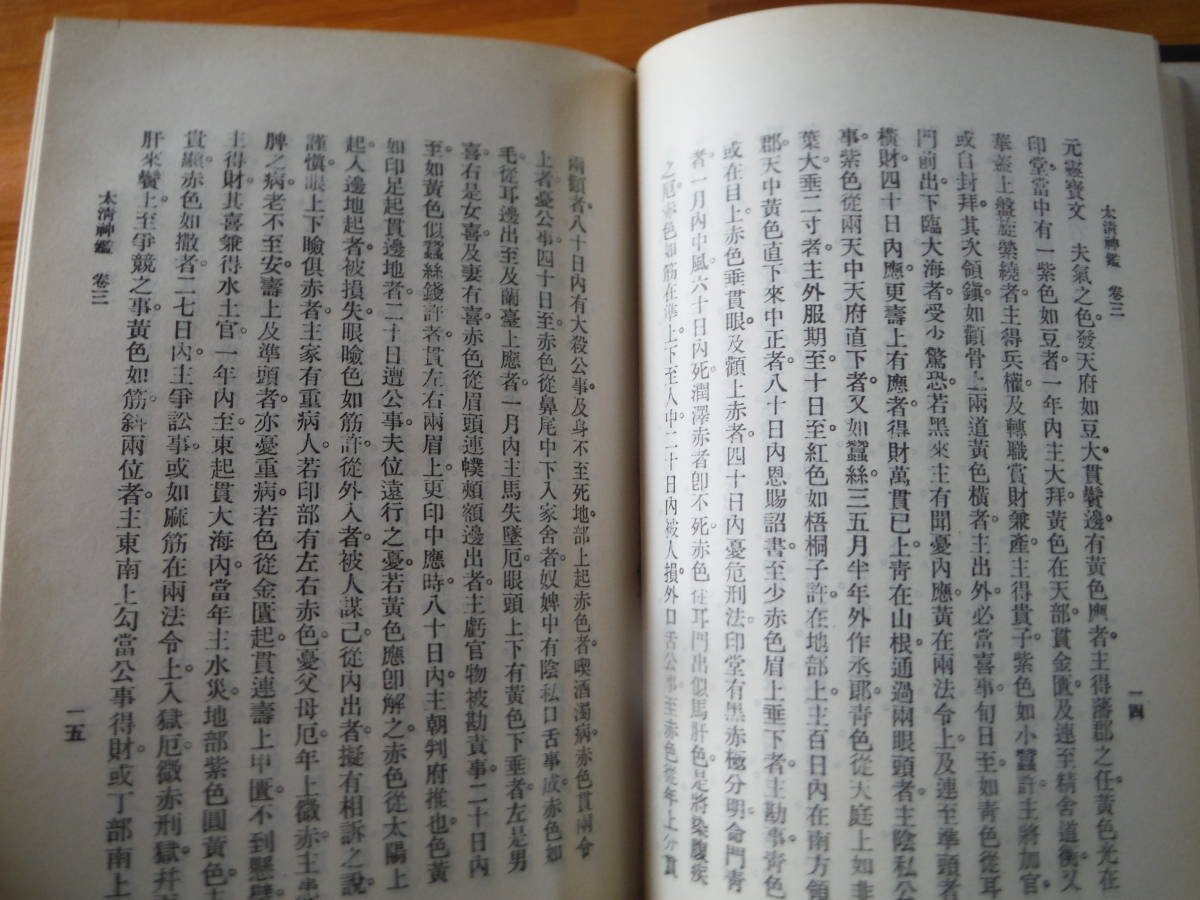 太清神鑑　卷三
一四
元靈寶文　夫氣之色。發天府如豆大貫鬢邊有黃色應者。主得藩郡之任。黃色光在
印堂。當中有一紫色如豆者。一年內主大拜。黃色在天部貫金匱。及連至精舍道衡。又
華蓋上盤旋縈繞者。主得兵權。及轉職賞財兼產。主得貴子。紫色如小蠶許。主將加官。
或自封拜。其次領鎮。如顴骨上兩道黃色橫者。主出外。必當喜事。旬日至。如青色從耳
門前出。下臨大海者。受少驚恐。若黑來主有聞憂內應。黃在兩法令上。及連至準頭者
橫財。四十日內應。更壽上有應者。得財萬貫已上。青在山根。通過兩眼頭者。主陰私公
事。紫色從兩天中天府直下者。又如蠶絲。三五月半年外作丞郎。青色從天庭上。如韭
葉大。垂二寸者。主外服期。至十日至。紅色如梧桐子許。在地部上。主百日內在南方領
郡。天中黃色直下來中正者。八十日內恩賜詔書至。少赤色眉上垂下者。主勘事。青色
或在目上。赤色垂貫眼。及顴上赤者。四十日內憂危刑法。印堂有黑赤極分明。命門青
者。一月內中風。六十日內死。潤澤赤者即不死。赤色從耳門出似馬肝色。是將染腹疾
之厄。赤色如筋在準上下至人中。二十日內被人損。外口舌公事至。赤色從年上分貫
兩顴者。八十日內有大殺公事。及身不至死。地部上起赤色者。喫酒濁病。赤色貫兩令
上者。憂公事。四十日至。赤色從鼻尾中下入家舍者。奴婢中有陰私口舌事成。赤色如
毛從耳邊出。至及蘭臺上應者。一月內主馬失墜厄。眼頭上下有黃色下垂者。左是男
喜。右是女喜。及妻有喜。赤色從眉頭連幞頰額邊出者。主虧官物被勘責事。二十日內
至。如黃色似蠶絲錢許者。貫左右兩眉上。更印中應時。八十日內主朝判府推也。色黃
如印足起貫邊地者。二十日遭公事。夫位遠行之憂。若黃色應即解之。赤色從太陽上
起入邊地起者。被損失。眼瞼色如筋許。從外入者。被人謀己。從內出者。擬有相訴之說。
謹慎。眼上下瞼俱赤者。主家有重病人。若印部有左右赤色。憂父母厄。年上微赤主患
脾之病。老不至安。壽上及準頭者。亦憂重病。若色從金匱起。貫連壽上甲匱。不到懸壁
主得財。其喜兼得水土官。一年內至。東起貫大海內。當年主水災。地部紫色圓黃色主
賞。顯赤色如撒者。二七日內主爭訟事。或如麻筋在兩法令上。入獄厄。微赤刑獄。并
肝來鬢上。至爭競之事。黃色如筋。斜兩位者。主東南上勾當公事得財。或丁部南上
太清神鑑　卷三
一五